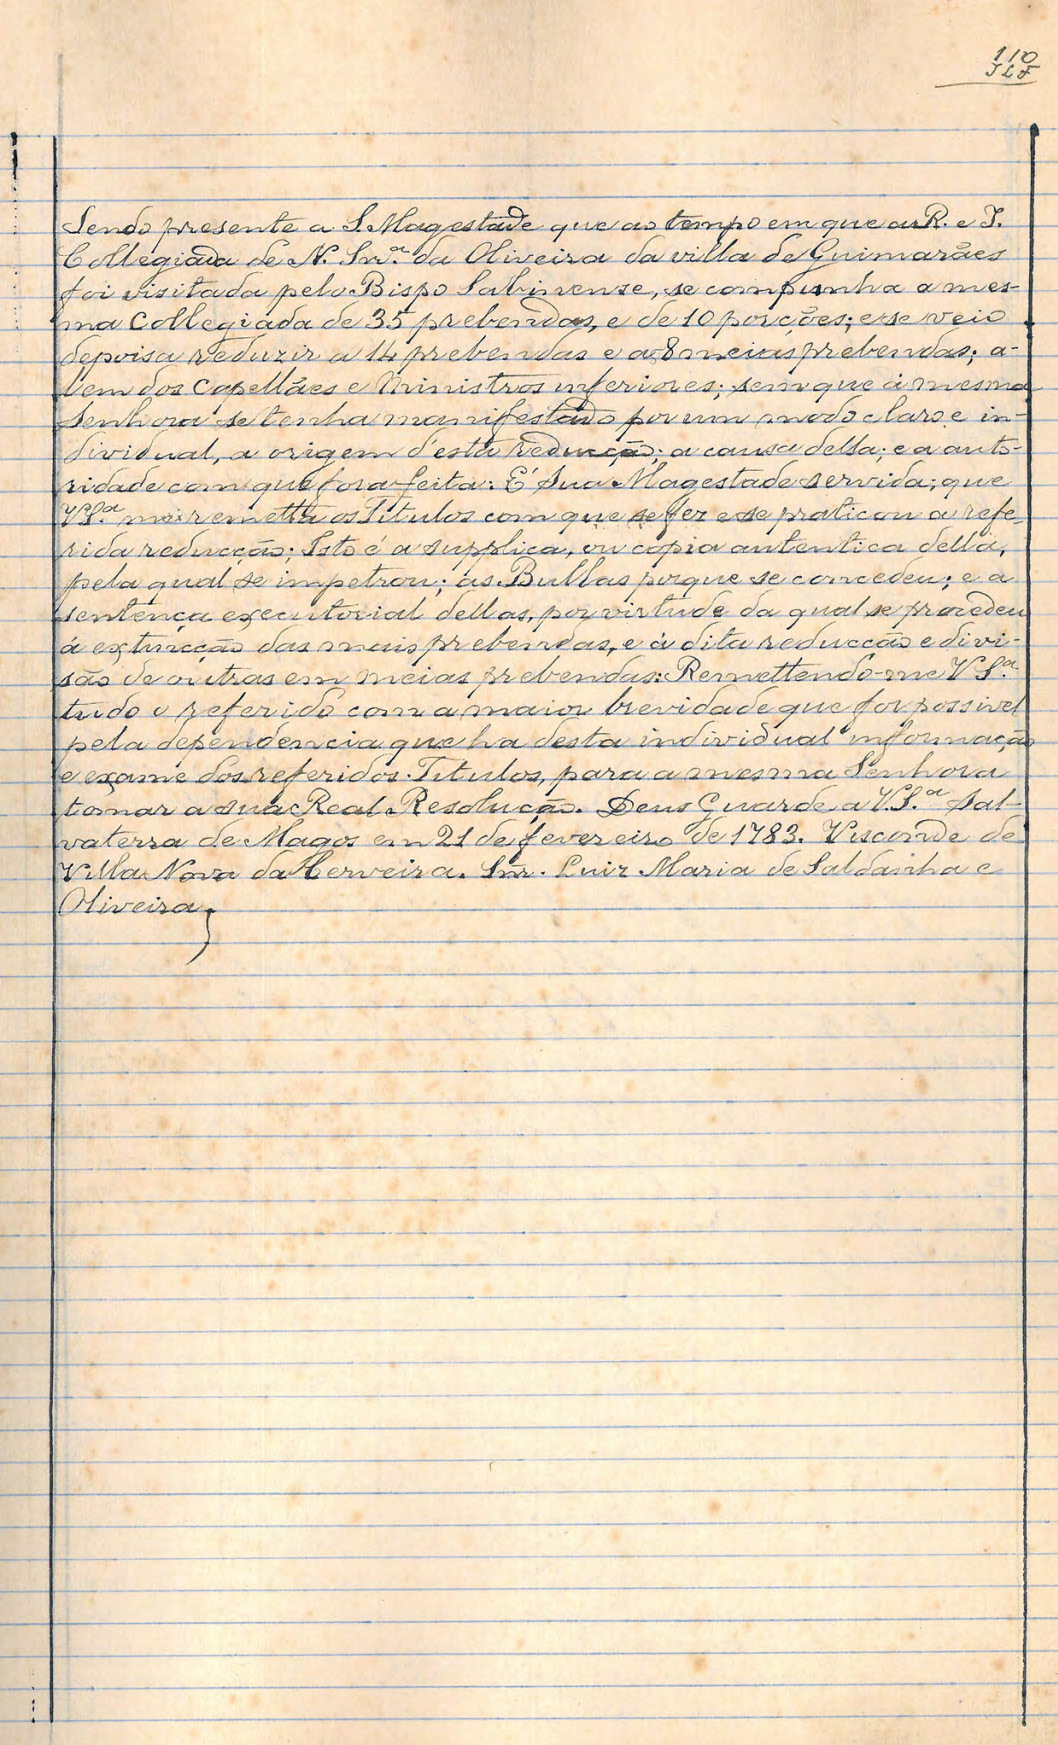 110
JLF
Sendo presente a S. Magestade que ao tempo em que a R. e I.
Collegiada de N. Snr.ª da Oliveira da villa de Guimarães
foi visitada pelo Bispo Sabinense, se compunha a mes-
ma Collegiada de 35 prebendas, e de 10 porções; e se veio
depois a reduzir a 14 prebendas e a 8 meias prebendas; a-
lem dos Capellães e Ministros inferiores; sem que á mesma
Senhora se tenha manifestado por um modo claro e in-
dividual, a origem d'esta reducção; a causa della; e a auto-
ridade com que fora feita: É Sua Magestade servida; que
V S.ª me remetta os Titulos com que se fez e se praticou a refe-
rida reducção; Isto é a supplica, ou copia autentica della,
pela qual se impetrou; as Bullas porque se concedeu; e a
sentença executorial dellas, por virtude da qual se procedeu
á extincção das mais prebendas, e á dita reducção e divi-
são de outras em meias prebendas: Remettendo-me V S.ª
tudo o referido com a maior brevidade que for possivel
pela dependencia que ha desta individual informação
e exame dos referidos Titulos, para a mesma Senhora
tomar a sua Real Resolução. Deus Guarde a V. S.ª Sal-
vaterra de Magos em 21 de fevereiro de 1783. Visconde de
Villa Nova da Cerveira. Snr. Luiz Maria de Saldanha e
Oliveira,